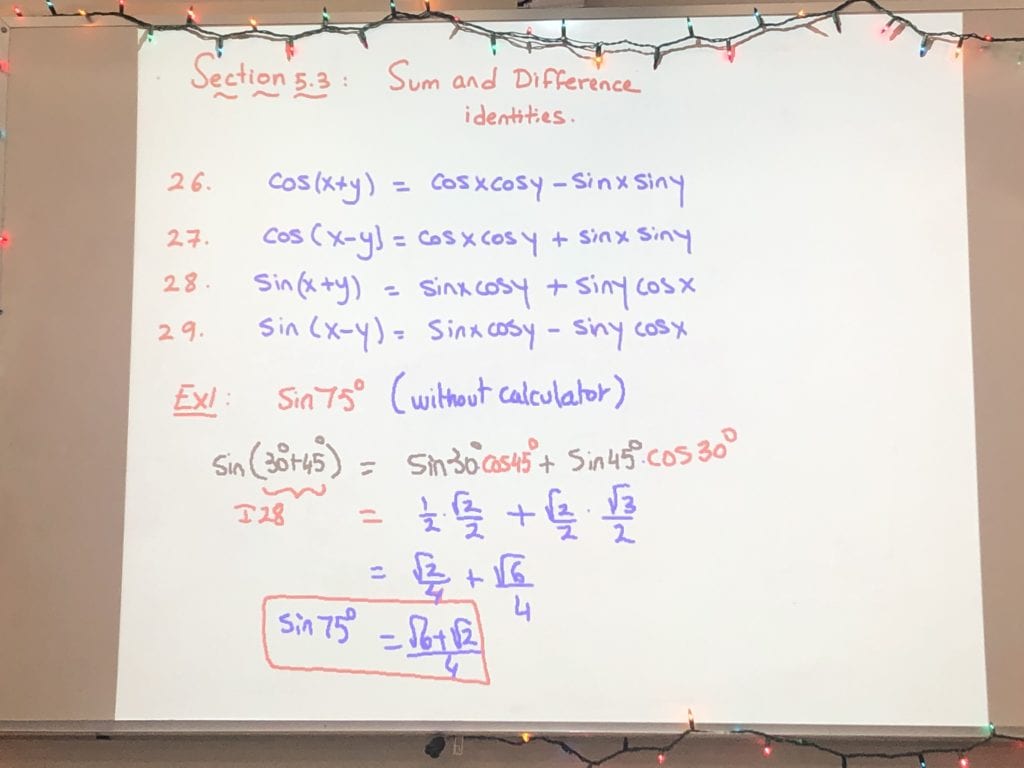 Section 5.3: Sum and Difference
identities.
26. cos(x+y) = cosxcosy - sinx siny
27. cos(x-y] = cosxcosy + sinx siny
28. sin(x+y) = sinxcosy + siny cosx
29. sin(x-y) = sinxcosy - siny cosx
Ex1: sin75° (without calculator)
sin(30°+45°) = sin30°cos45° + sin45°·cos30°
I28 = 1/2 · √2/2 + √2/2 · √3/2
= √2/4 + √6/4
sin75° = √6+√2/4